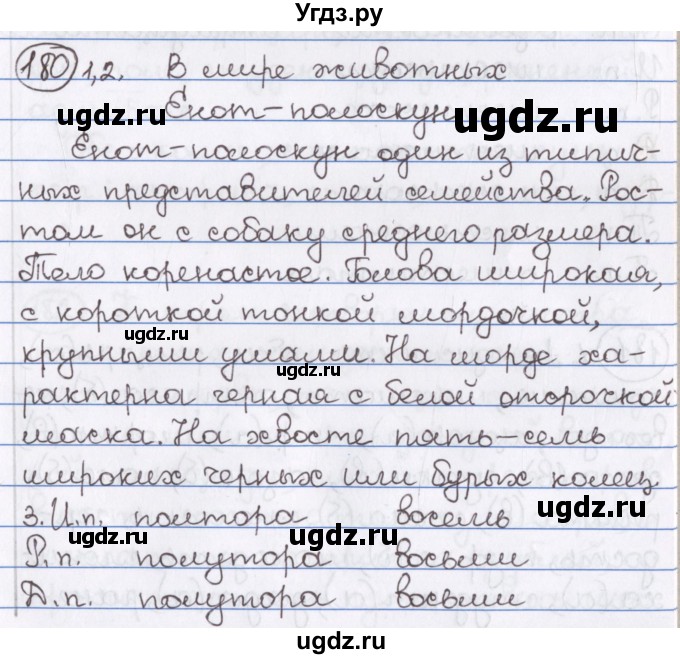 Угдз.ру
180 1,2. В мире животных
Енот-полоскун
Енот-полоскун один из типич-
ных представителей семейства. Рос-
том он с собаку среднего размера.
Тело коренастое. Голова широкая,
с короткой тонкой мордочкой,
крупными ушами. На морде ха-
рактерна черная с белой оторочкой
маска. На хвосте пять–семь
широких черных или бурых колец.
3. И.п. полтора восемь
Р.п. полутора восьми
Д.п. полутора восьми
ugdz.ru
ugdz.ru
ugdz.ru
ugdz.ru
ugdz.ru
ugdz.ru
ugdz.ru
ugdz.ru